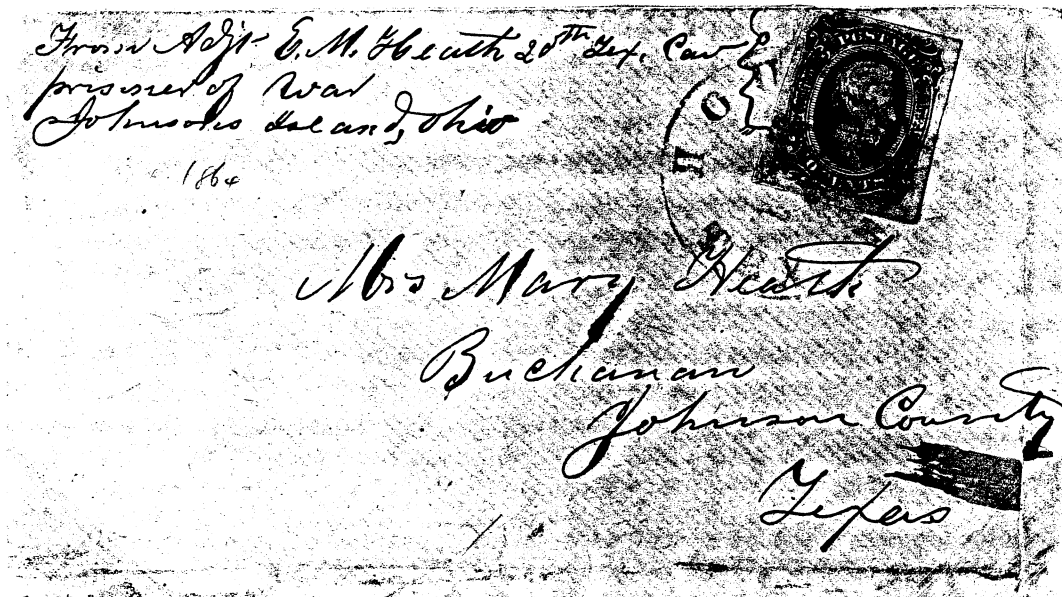 From Adjt. E. M. Heath 20th Tex. Cav.
prisoner of War
Johnsons Island, Ohio
1864
POSTAGE
H O
Mrs Mary Heath
Buchanan
Johnson County
Texas